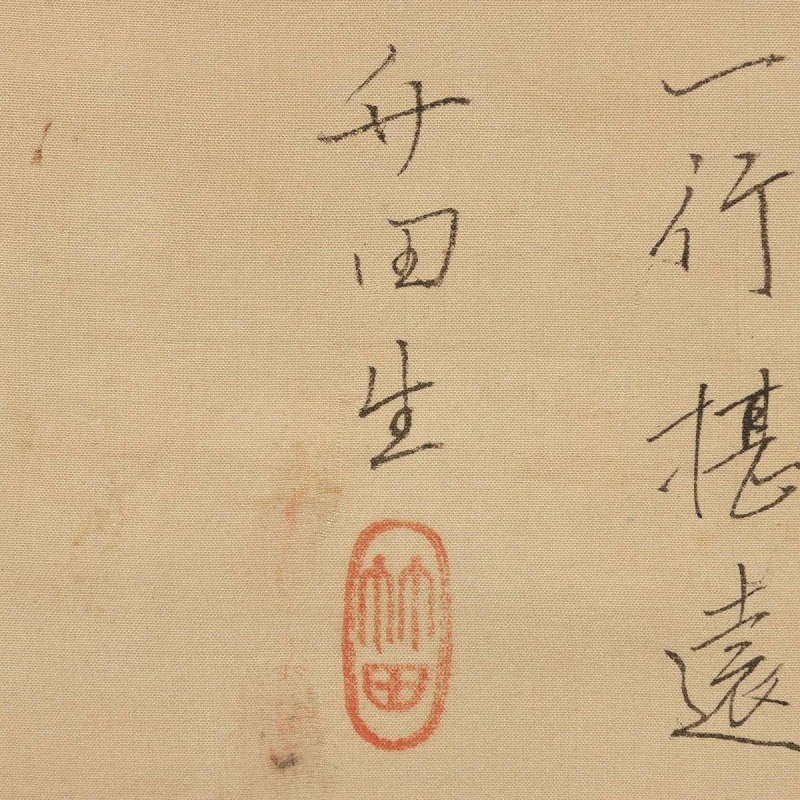 一行遠
竹田生
竹田